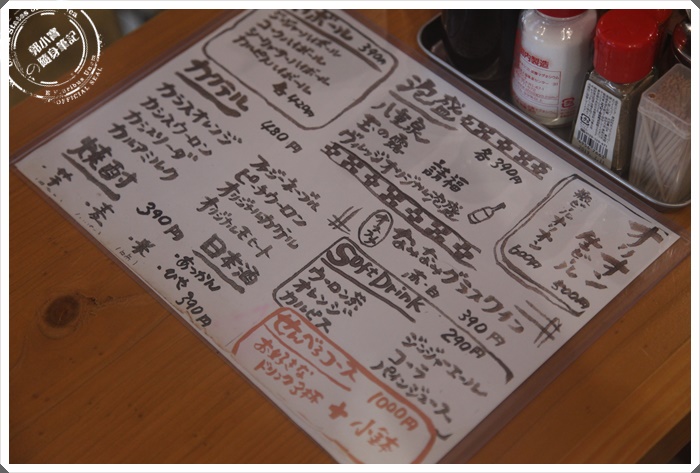 郭小寶の隨身筆記
OFFICIAL SEAL
ボール 390円
ジンジャーハイボール
コークハイボール
各420円
カクテル
480円
カシスオレンジ
カシスウーロン
カシスソーダ
カルアミルク
ファジーネーブル
ピーチウーロン
オリジナルカクテル
オリジナルモヒート
焼酎
390円
・芋 ・麦 ・米
日本酒
・あつかん
・ひや
390円
泡盛
各390円
八重泉
玉の露
請福
ヴィレッジオリジナル泡盛
オリオン
生ビール
500円
600円
グラスワイン
赤 白
390円
Soft Drink
290円
ウーロン茶
オレンジ
カルピス
ジンジャエール
コーラ
パインジュース
せんべろコース
1000円
お好きな
ドリンク3杯
+
小鉢